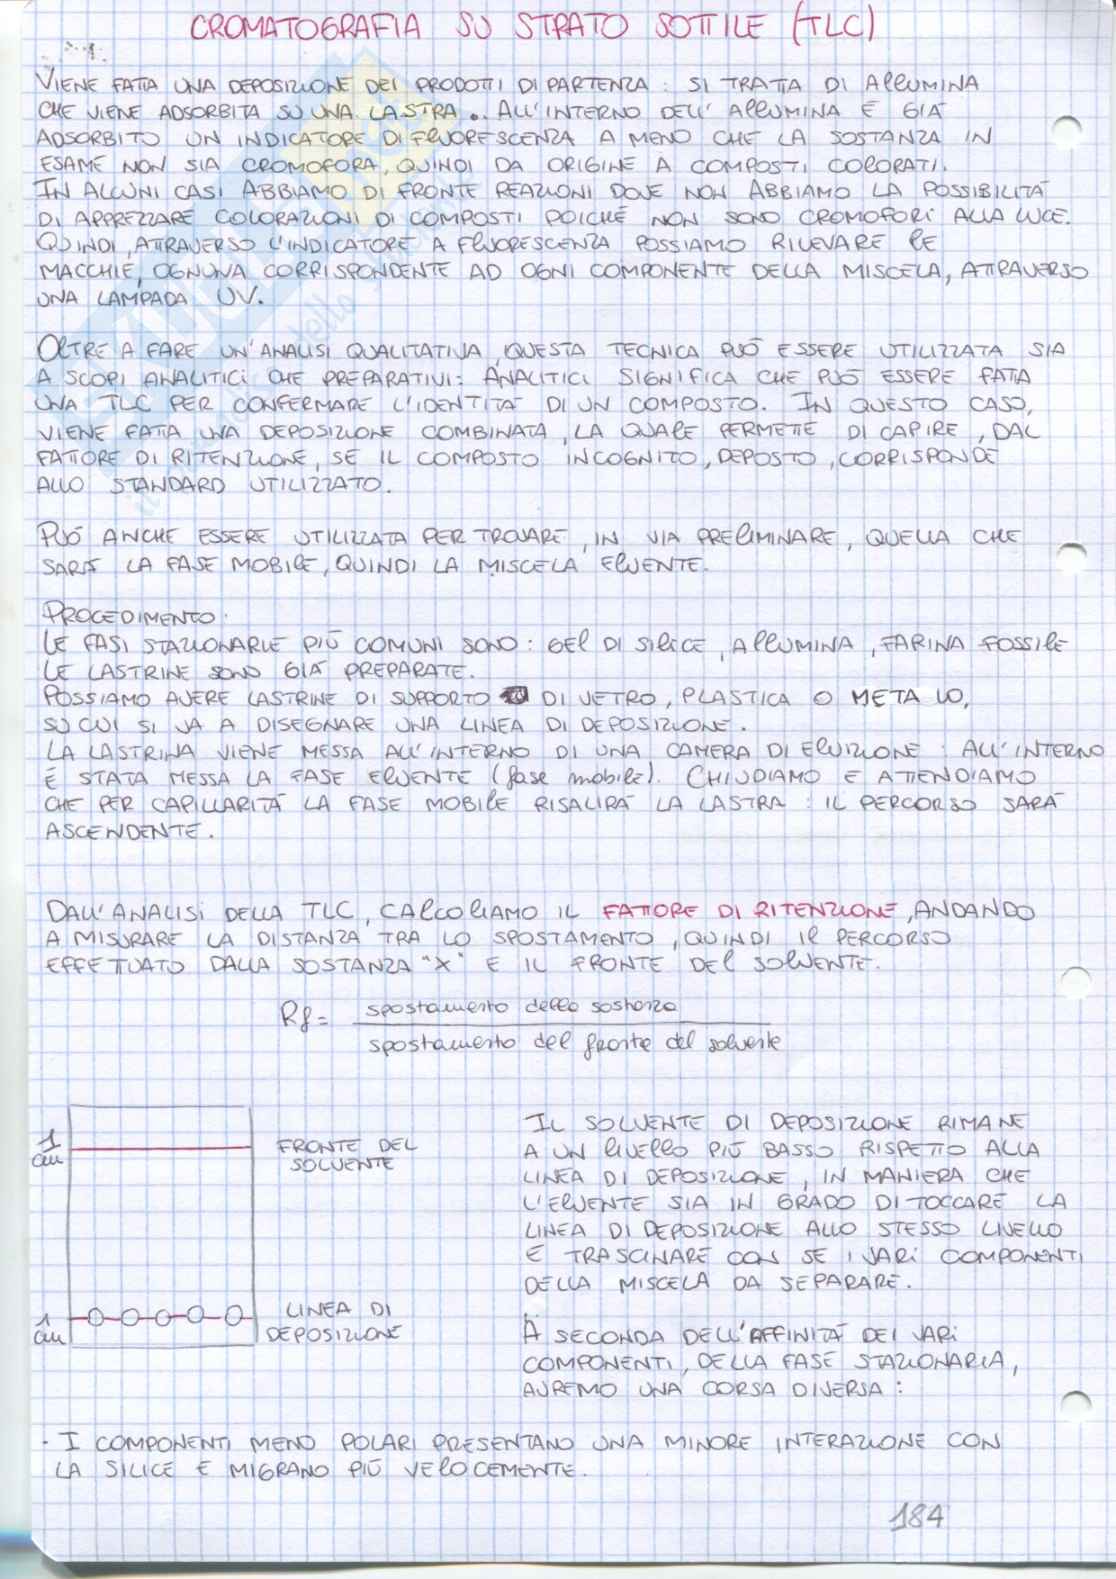 CROMATOGRAFIA SU STRATO SOTTILE (TLC)
VIENE FATTA UNA DEPOSIZIONE DEI PRODOTTI DI PARTENZA: SI TRATTA DI ALLUMINA
CHE VIENE ADSORBITA SU UNA LASTRA. ALL'INTERNO DELL'ALLUMINA È GIÀ
ADSORBITO UN INDICATORE DI FLUORESCENZA A MENO CHE LA SOSTANZA IN
ESAME NON SIA CROMOFORA, QUINDI DA ORIGINE A COMPOSTI COLORATI.
IN ALCUNI CASI ABBIAMO DI FRONTE REAZIONI DOVE NON ABBIAMO LA POSSIBILITÀ
DI APPREZZARE COLORAZIONI DI COMPOSTI POICHÉ NON SONO CROMOFORI ALLA LUCE.
QUINDI, ATTRAVERSO L'INDICATORE A FLUORESCENZA POSSIAMO RILEVARE LE
MACCHIE, OGNUNA CORRISPONDENTE AD OGNI COMPONENTE DELLA MISCELA, ATTRAVERSO
UNA LAMPADA UV.
OLTRE A FARE UN'ANALISI QUALITATIVA, QUESTA TECNICA PUÒ ESSERE UTILIZZATA SIA
A SCOPI ANALITICI CHE PREPARATIVI: ANALITICI SIGNIFICA CHE PUÒ ESSERE FATTA
UNA TLC PER CONFERMARE L'IDENTITÀ DI UN COMPOSTO. IN QUESTO CASO,
VIENE FATTA UNA DEPOSIZIONE COMBINATA, LA QUALE PERMETTE DI CAPIRE, DAL
FATTORE DI RITENZIONE, SE IL COMPOSTO INCOGNITO, DEPOSTO, CORRISPONDE
ALLO STANDARD UTILIZZATO.
PUÒ ANCHE ESSERE UTILIZZATA PER TROVARE, IN VIA PRELIMINARE, QUELLA CHE
SARÀ LA FASE MOBILE, QUINDI LA MISCELA ELUENTE.
PROCEDIMENTO.
LE FASI STAZIONARIE PIÙ COMUNI SONO: GEL DI SILICE, ALLUMINA, FARINA FOSSILE
LE LASTRINE SONO GIÀ PREPARATE.
POSSIAMO AVERE LASTRINE DI SUPPORTO DI VETRO, PLASTICA O METALLO,
SU CUI SI VA A DISEGNARE UNA LINEA DI DEPOSIZIONE.
LA LASTRINA VIENE MESSA ALL'INTERNO DI UNA CAMERA DI ELUIZIONE: ALL'INTERNO
È STATA MESSA LA FASE ELUENTE (fase mobile). CHIUDIAMO E ATTENDIAMO
CHE PER CAPILLARITÀ LA FASE MOBILE RISALIRÀ LA LASTRA: IL PERCORSO SARÀ
ASCENDENTE.
DALL'ANALISI DELLA TLC, CALCOLIAMO IL FATTORE DI RITENZIONE, ANDANDO
A MISURARE LA DISTANZA TRA LO SPOSTAMENTO, QUINDI IL PERCORSO
EFFETTUATO DALLA SOSTANZA "X" E IL FRONTE DEL SOLVENTE.
Rf = spostamento della sostanza
spostamento del fronte del solvente
1 cm
FRONTE DEL
SOLVENTE
1 cm
LINEA DI
DEPOSIZIONE
IL SOLVENTE DI DEPOSIZIONE RIMANE
A UN LIVELLO PIÙ BASSO RISPETTO ALLA
LINEA DI DEPOSIZIONE, IN MANIERA CHE
L'ELUENTE SIA IN GRADO DI TOCCARE LA
LINEA DI DEPOSIZIONE ALLO STESSO LIVELLO
E TRASCINARE CON SE I VARI COMPONENTI
DELLA MISCELA DA SEPARARE.
A SECONDA DELL'AFFINITÀ DEI VARI
COMPONENTI, DELLA FASE STAZIONARIA,
AVREMO UNA CORSA DIVERSA:
- I COMPONENTI MENO POLARI PRESENTANO UNA MINORE INTERAZIONE CON
LA SILICE E MIGRANO PIÙ VELOCEMENTE.
184